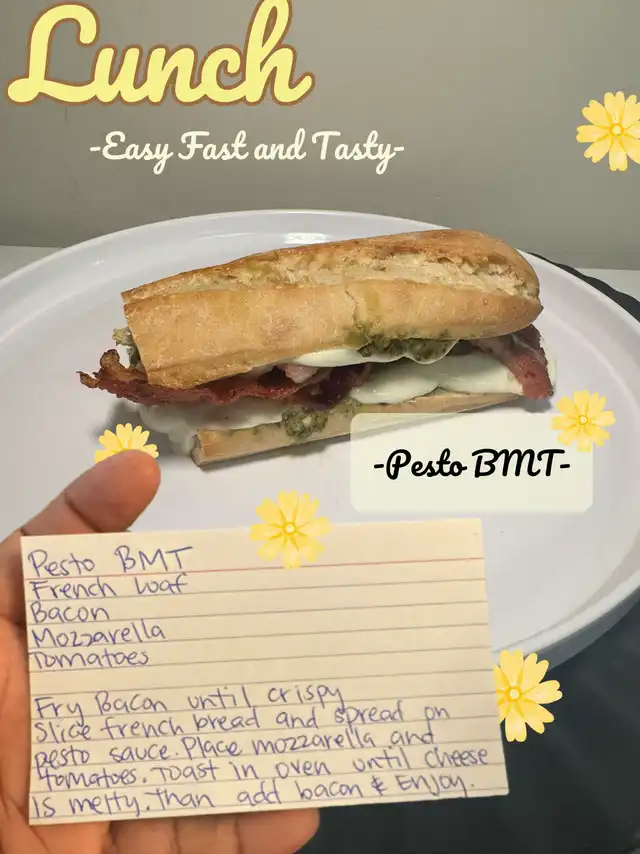 Lunch
-Easy Fast and Tasty-
-Pesto BMT-
Pesto BMT
French loaf
Bacon
Mozzarella
Tomatoes
Fry Bacon until crispy
Slice french bread and spread on
pesto sauce. Place mozzarella and
tomatoes. Toast in oven until cheese
is melty. Than add bacon & Enjoy.